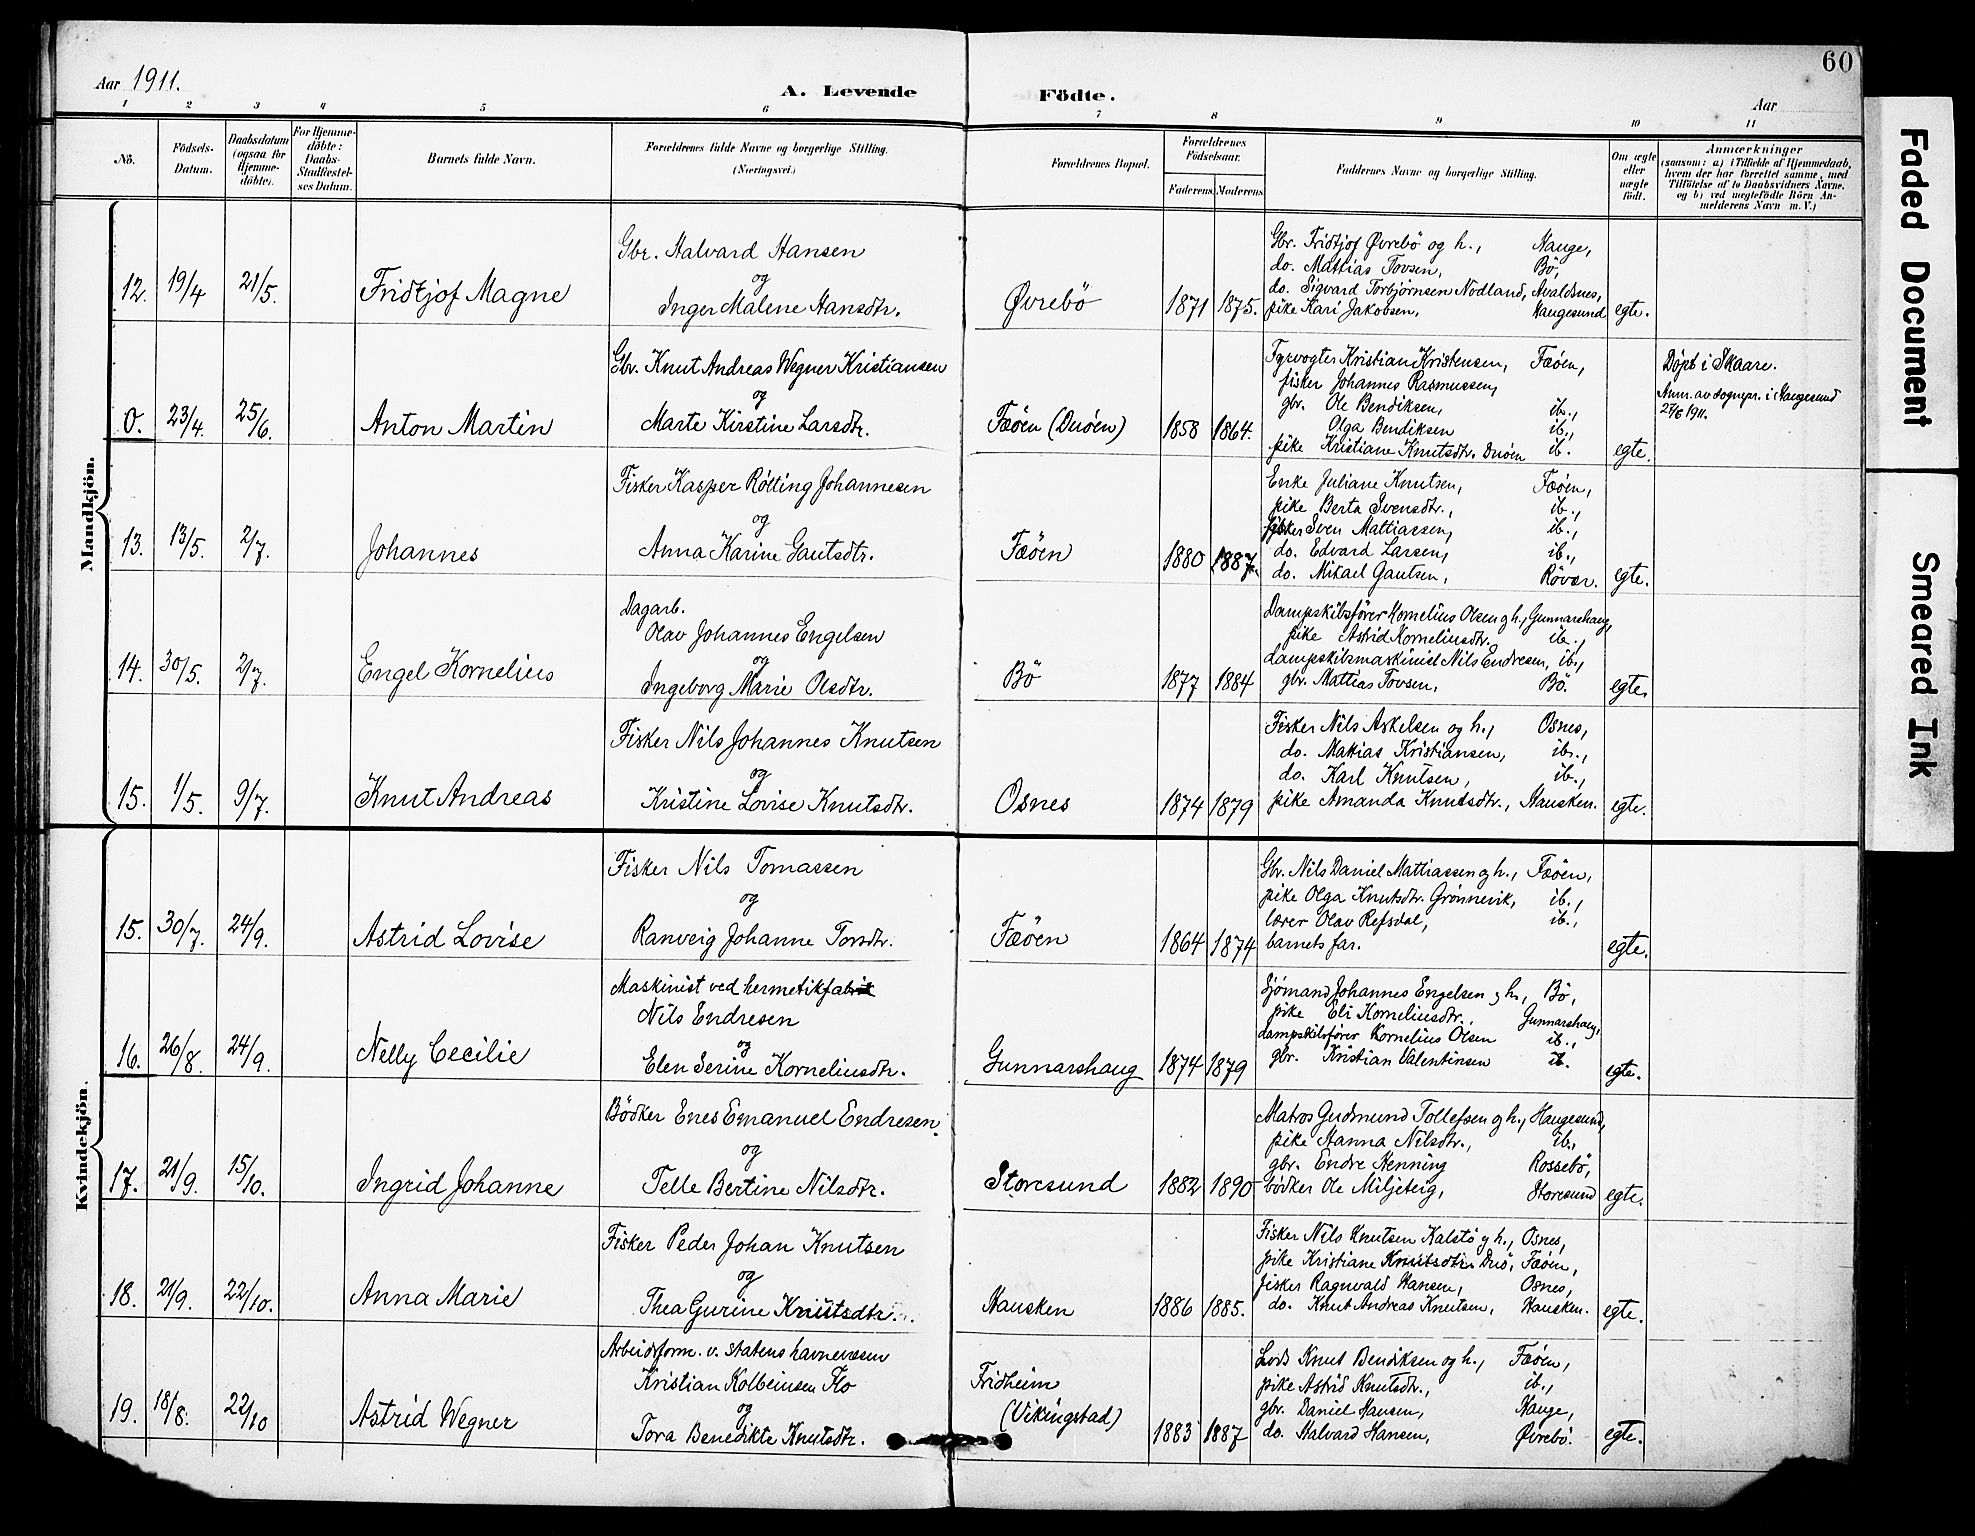 60
Aar 1911.
A. Levende
Födte.
Aar
1 2 3 4 5 6 7 8 9 10 11
Nö.
Födsels-
Datum.
Daabsdatum
(ogsaa for
Hjemme-
döbte).
For Hjemme-
döbte:
Daabs-
Stadfæstel-
ses Datum.
Barnets fulde Navn.
Forældrenes fulde Navne og borgerlige Stilling.
(Næringsvei.)
Forældrenes Bopæl.
Forældrenes
Födselsaar.
Faderens. Moderens.
Faddernes Navne og borgerlige Stilling.
Om ægte
eller
uægte
født.
Anmærkninger
(saasom: a) i Tilfælde af Hjemmedaab,
hvem der har forrettet samme, med
Tilföielse af to Daabsvidners Navne.
og b) ved uægtefödte Börn An-
melderens Navn m. V.)
Mandkjön.
12. 19/4 21/5. Fridtjof Magne
Gbr. Halvard Hansen
og
Inger Malene Hansdtr.
Øvrebö 1871 1875.
Gbr. Fridtjof Øvrebö og h., Hauge,
do. Mattias Tovsen, Bö,
do. Sigvard Torbjørnsen Nodland, Avaldsnes,
pike Kari Jakobsen, Haugesund
egte.
0. 23/4. 25/6. Anton Martin
Gbr. Knut Andreas Wegner Kristiansen
og
Marte Kirstine Larsdtr.
Fæöen (Duöen) 1858 1864.
Fyrvogter Kristian Kristensen, Fæöen,
fisker Johannes Rasmussen,
gbr. Ole Bendiksen, ib.,
Olga Bendiksen ib.,
pike Kristiane Knutsdtr. Duöen ib.
egte.
Döpt i Skaare.
Anm. av sognepr. i Haugesund
27/6 1911.
13. 13/5. 2/7. Johannes
Fisker Kasper Rötting Johannesen
og
Anna Karine Gautsdtr.
Fæöen 1880 1887.
Enke Juliane Knutsen, Fæöen,
pike Berta Svensdtr., ib.,
fisker Sven Mattiassen, ib.,
do. Edvard Larsen, ib.,
do. Mikael Gautsen, Rövær.
egte.
14. 30/5. 2/7. Engel Kornelius
Dagarb.
Olav Johannes Engelsen
og
Ingeborg Marie Olsdtr.
Bö 1877 1884
Dampskibsförer Kornelius Olsen og h., Gunnarshaug,
pike Astrid Korneliusdtr. ib.,
dampskibsmaskinist Nils Endresen, ib.,
gbr. Mattias Tovsen, Bö.
egte.
15. 1/5. 9/7. Knut Andreas
Fisker Nils Johannes Knutsen
og
Kristine Lovise Knutsdtr.
Osnes 1874 1879
Fisker Nils Askelsen og h., Osnes,
do. Mattias Kristiansen, ib.,
do. Karl Knutsen, ib.,
pike Amanda Knutsdtr., Hausken.
egte.
Kvindekjön.
15. 30/7. 24/9. Astrid Lovise
Fisker Nils Tomassen
og
Ranveig Johanne Torsdtr.
Fæöen 1864 1874
Gbr. Nils Daniel Mattiassen og h., Fæöen,
pike Olga Knutsdtr. Grönnevik, ib.,
lærer Olav Refsdal, ib.,
barnets far.
egte.
16. 26/8. 24/9. Nelly Cecilie
Maskinist ved hermetikfabrik
Nils Endresen
og
Elen Serine Korneliusdtr.
Gunnarshaug 1874 1879
Sjömand Johannes Engelsen og h., Bö,
pike Eli Korneliusdtr., Gunnarshaug,
dampskibsförer Kornelius Olsen ib.,
gbr. Kristian Valentinsen ib.
egte.
17. 21/9. 15/10. Ingrid Johanne
Bödker Enes Emanuel Endresen
og
Telle Bertine Nilsdtr.
Storesund 1882 1890
Matros Gudmund Tollefsen og h., Haugesund,
pike Hanna Nilsdtr., ib.,
gbr. Endre Henning Rossebö,
bödker Ole Miljeteig, Storesund
egte.
18. 21/9. 22/10. Anna Marie
Fisker Peder Johan Knutsen
og
Thea Gurine Knutsdtr.
Hausken 1886 1885.
Fisker Nils Knutsen Kalstö og h., Osnes,
pike Kristiane Knutsdtr. Duö, Fæöen,
fisker Ragnvald Hansen, Osnes,
do. Knut Andreas Knutsen, Hausken.
egte.
19. 18/8. 22/10 Astrid Wegner
Arbeidsform. v. statens havnevæsen
Kristian Kolbeinsen Flo
og
Tora Benedikte Knutsdtr.
Fridheim
(Vikingstad) 1883 1887
Lods Knut Bendiksen og h., Fæöen,
pike Astrid Knutsdtr., ib.,
gbr. Daniel Hansen, Hauge,
do. Halvard Hansen, Øvrebö.
egte.
Faded Document
Smeared Ink